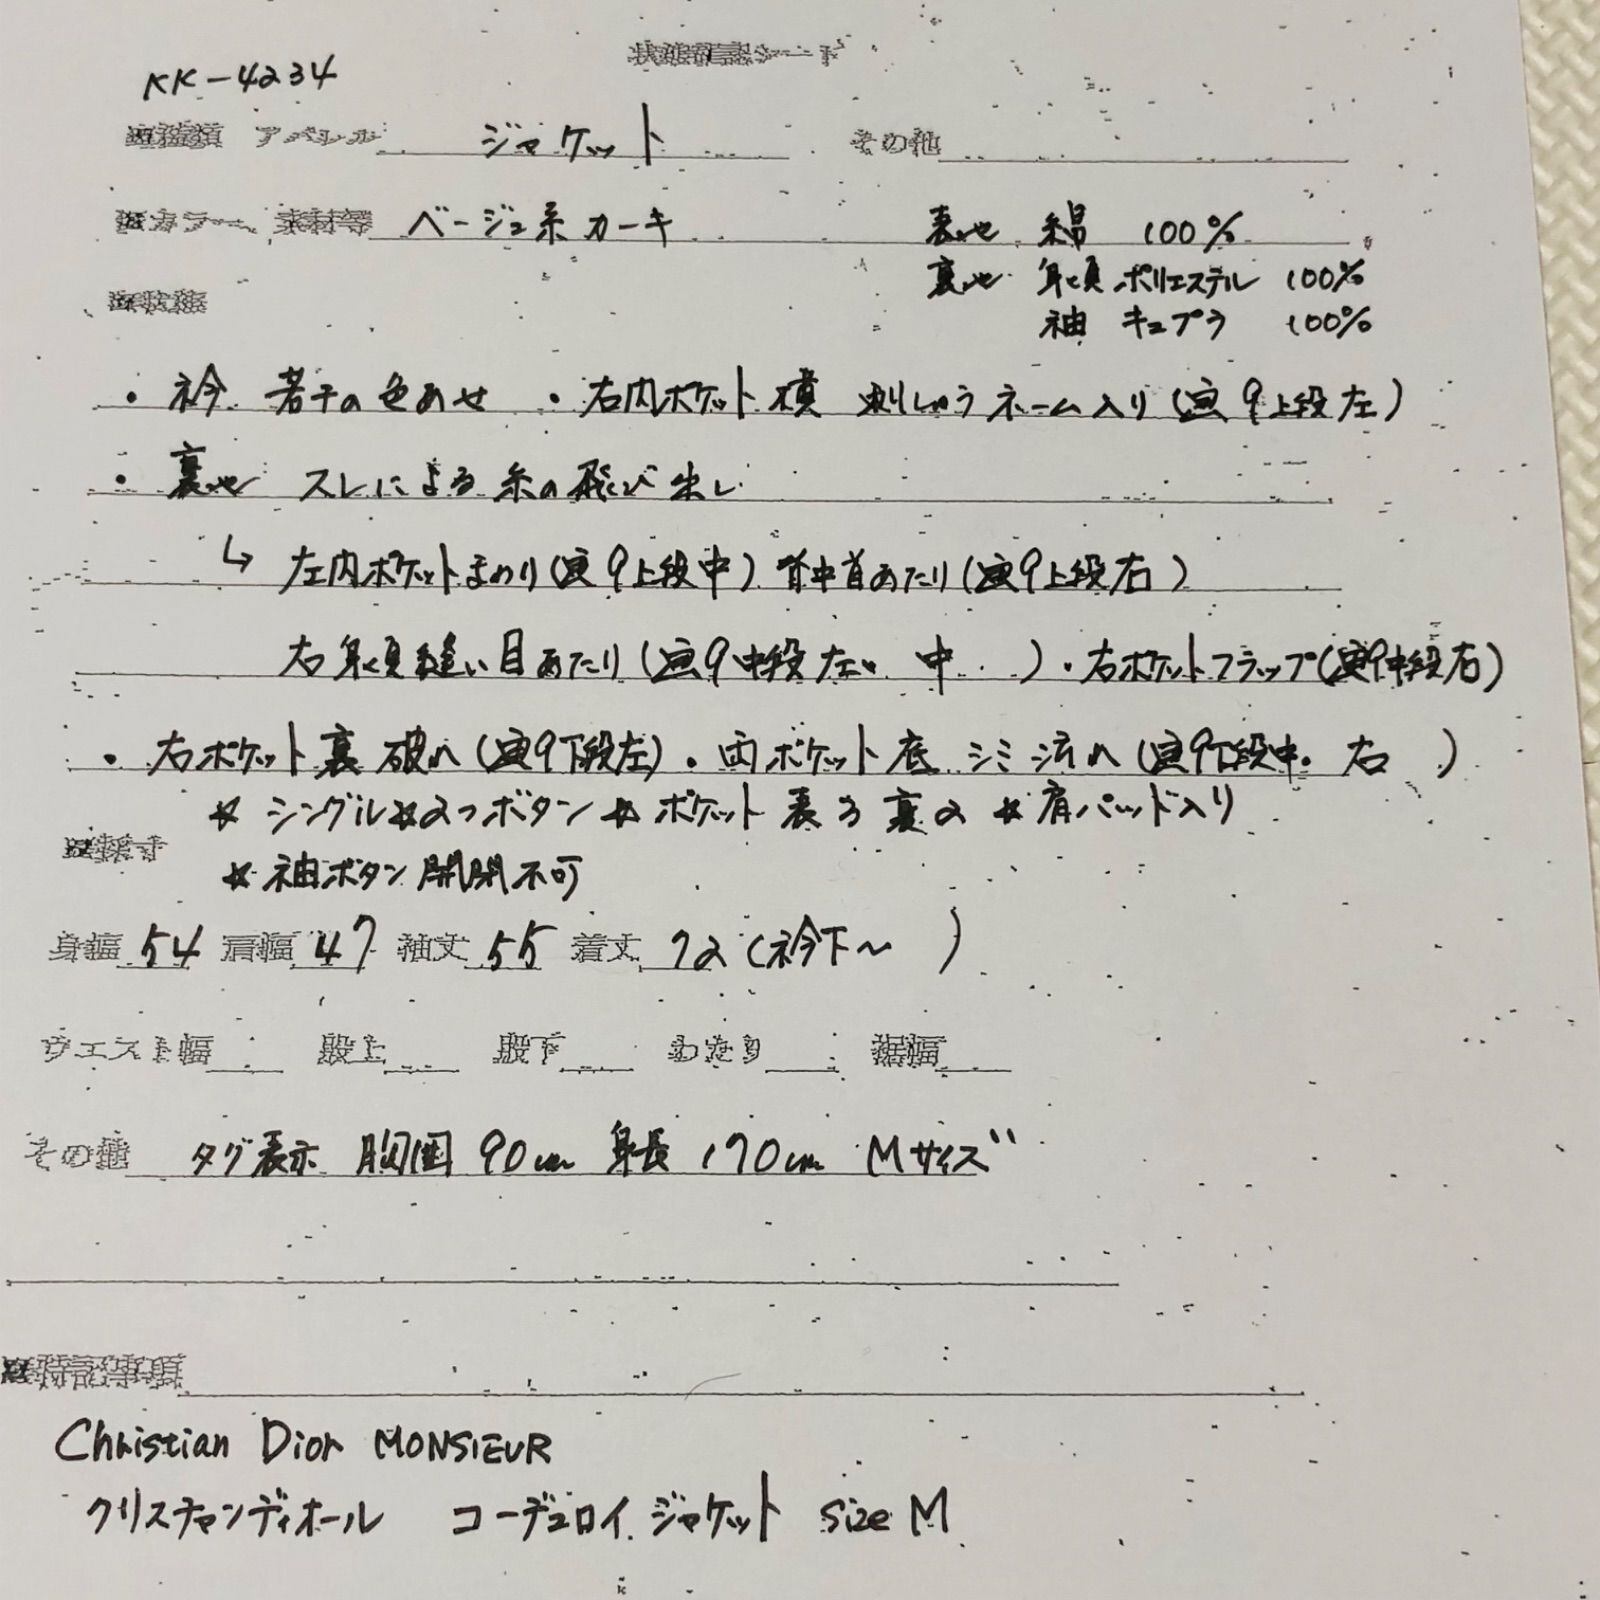 状態確認シート
KK-4234
アパレル ジャケット その他
カラー、素材等 ベージュ系カーキ 表地 綿 100%
裏地 身頃 ポリエステル 100%
袖 キュプラ 100%
状態
・衿 若干の色あせ ・右内ポケット横 刺しゅうネーム入り(画9上段左)
・裏地 スレによる糸の飛び出し
↳ 左内ポケットまわり(画9上段中) 背中首あたり(画9上段右)
右身頃縫い目あたり(画9中段左・中 )・右ポケットフラップ(画9中段右)
・右ポケット裏 破れ(画9下段左)・両ポケット底 シミ汚れ(画9下段中・右 )
☆シングル☆2つボタン☆ポケット 表3裏2 ☆肩パッド入り
採寸
☆袖ボタン開閉不可
身幅 54 肩幅 47 袖丈 55 着丈 72(衿下〜 )
ウエスト幅 股上 股下 わたり 裾幅
その他 タグ表示 胸囲 90cm 身長 170cm Mサイズ
特記事項
Christian Dior MONSIEUR
クリスチャンディオール コーデュロイ ジャケット size M